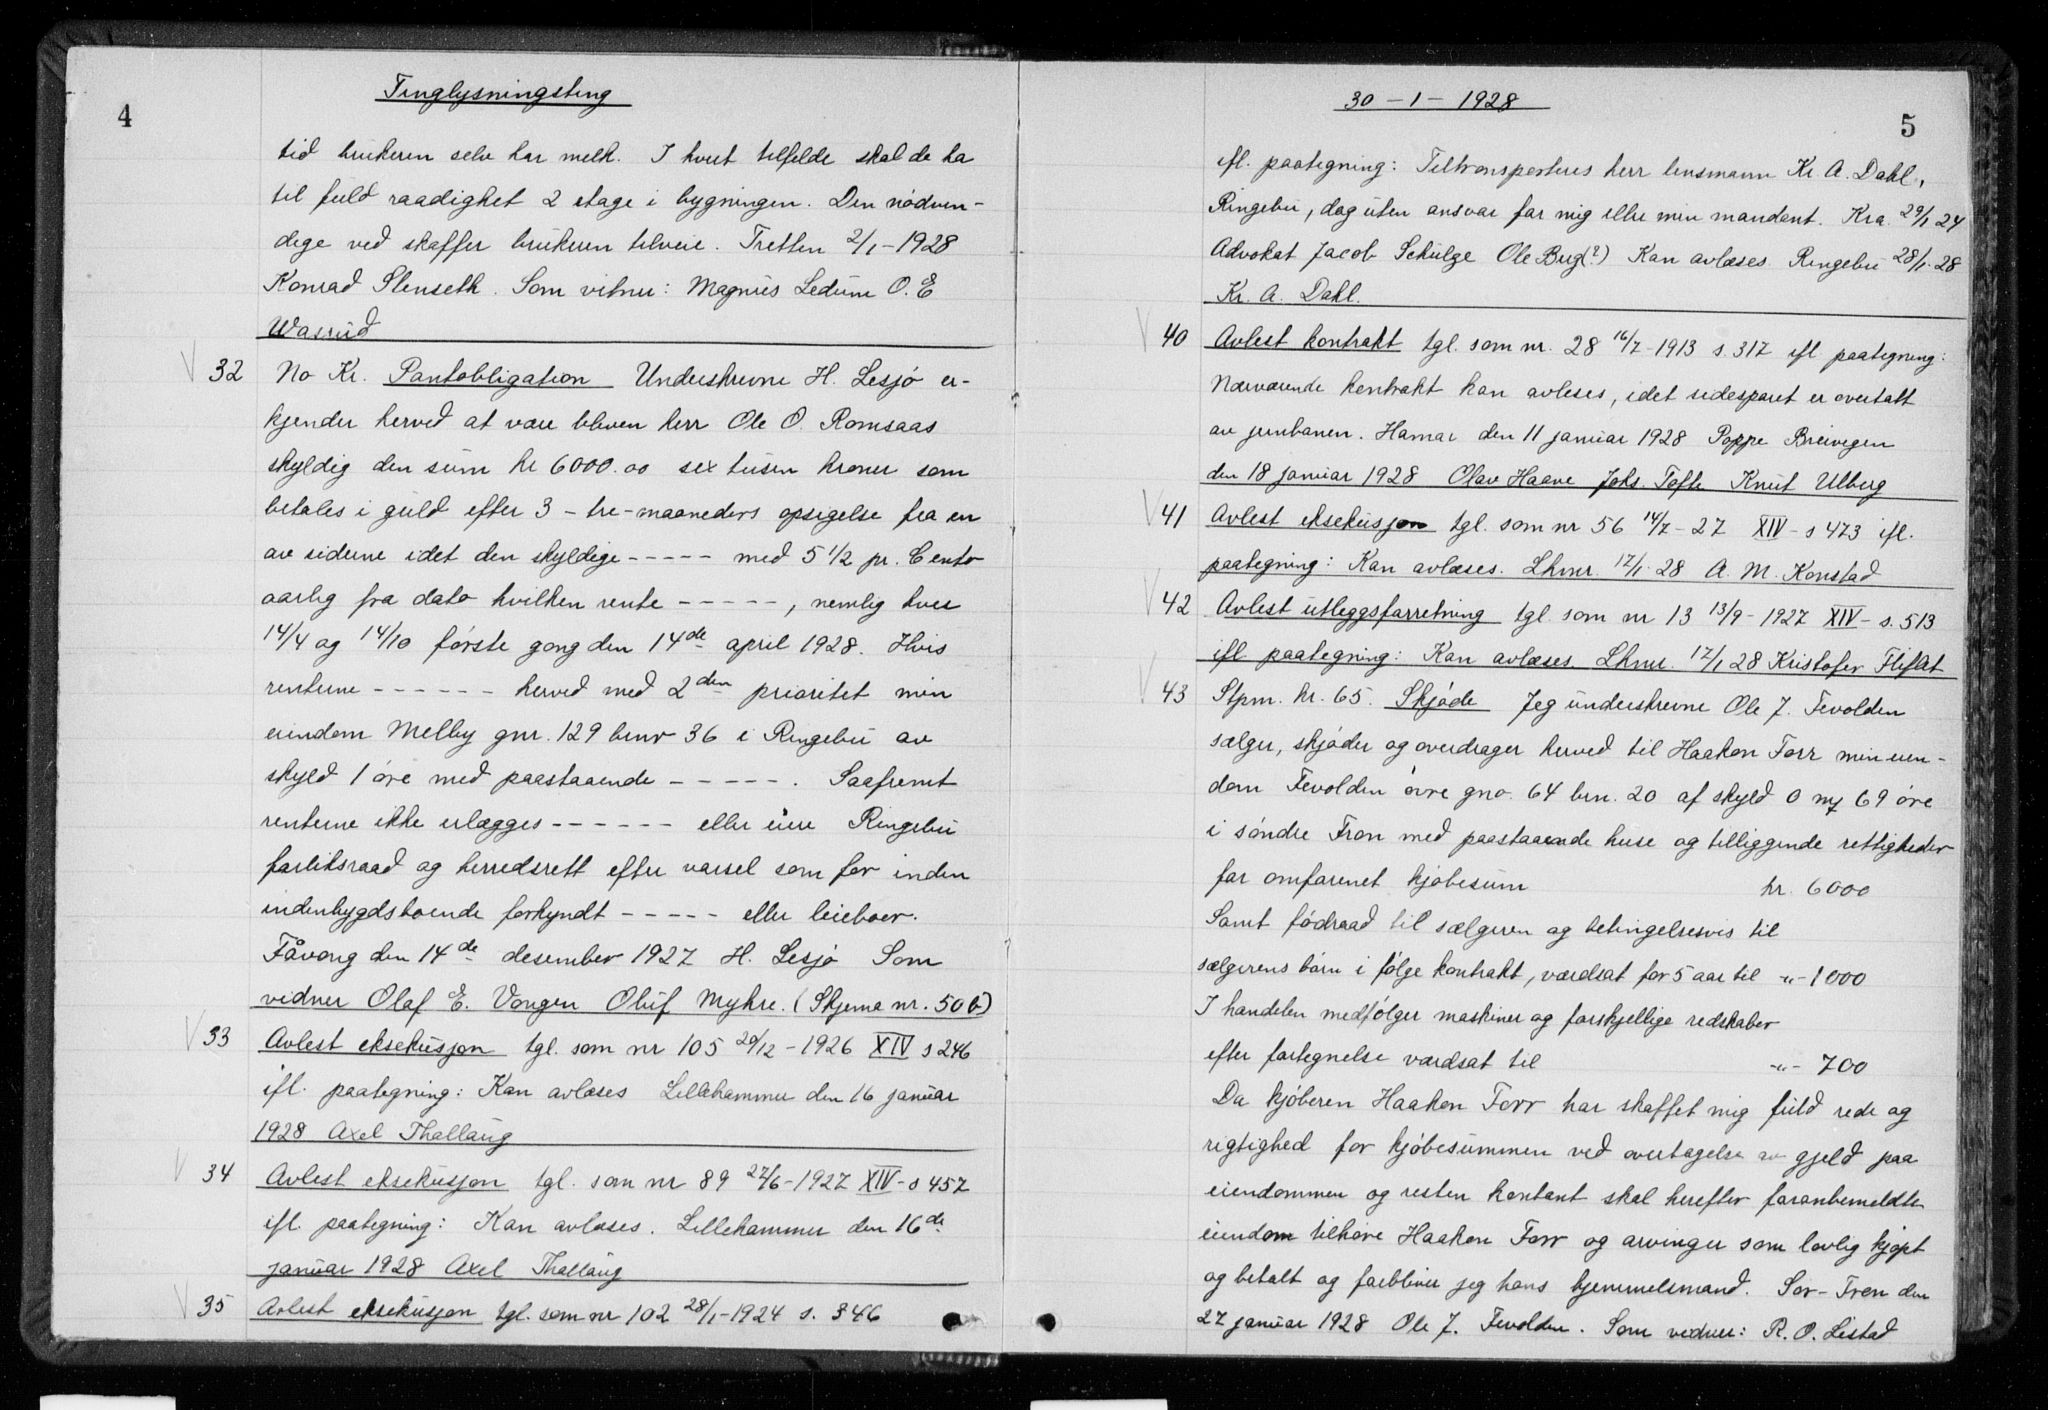 4
Tinglysningsting
tid brukeren selv har melk. I hvert tilfelde skal de ha
til fuld raadighet 2 etage i bygningen. Den nödven-
dige ved skaffer brukeren tilveie. Tretten 2/1-1928
Konrad Stenseth. Som vitner: Magnus Ledum O. E
Wasrud
32 No Kr. Pantobligation Underskrevne H. Lesjö er-
kjender herved at være bleven herr Ole O. Romsaas
skyldig den sum kr 6000.00 sex tusen kroner som
betales i guld efter 3 - tre-maaneders opsigelse fra en
av siderne idet den skyldige ----- med 5 1/2 pr. Cento
aarlig fra dato hvilken rente -----, nemlig hver
14/4 og 14/10 förste gong den 14de april 1928. Hvis
renterne ------ herved med 2den prioritet min
eiendom Melby gnr. 129 brnr 36 i Ringebu av
skyld 1 öre med paastaaende -----. Saafremt
renterne ikke erlægges ------ eller eiere Ringebu
forliksraad og herredsrett efter varsel som for inden
indenbygdsboende forkyndt ----- eller leieboer.
Fåvang den 14de desember 1927 H. Lesjö Som
vidner Olaf E. Vongen Oluf Myhre. (Skjema nr. 50b)
33 Avlest eksekusjon tgl. som nr 105 20/12-1926 XIV s 246
ifl. paategning: Kan avlæses Lillehammer den 16 januar
1928 Axel Thallaug
34 Avlest eksekusjon tgl. som nr 89 27/6-1927 XIV-s 457
ifl. paategning: Kan avlæses. Lillehammer den 16de
januar 1928 Axel Thallaug
35 Avlest eksekusjon tgl. som nr 102 28/1-1924 s. 346
30-1-1928
5
ifl. paategning: Tiltransporteres herr lensmann Kr. A. Dahl,
Ringebu, dog uten ansvar for mig eller min mandant. Kra. 29/1 24
Advokat Jacob Schulze Ole Bug(?) Kan avlæses. Ringebu 28/1-28
Kr. A. Dahl.
40 Avlest kontrakt tgl. som nr. 28 16/7-1913 s. 317 ifl paategning:
Nærværende kontrakt kan avleses, idet sidesporet er overtatt
av jernbanen. Hamar den 11 januar 1928 Poppe Breivegen
den 18 januar 1928 Olav Haave Johs. Tofte Knut Ulberg
41 Avlest eksekusjon tgl. som nr 56 14/7-27 XIV-s 473 ifl.
paategning: Kan avlæses. Lhmr. 17/1-28 A. M. Konstad
42 Avlest utleggsforretning tgl. som nr 13 13/9-1927 XIV-s. 513
ifl. paategning: Kan avlæses Lhmr. 17/1 28 Kristofer Flifat
43 Stpm. kr. 65. Skjöde Jeg underskrevne Ole J. Fevolden
sælger, skjöder og overdrager herved til Haakon Forr min eien-
dom Fevolden övre gno. 64 brn. 20 af skyld 0 mk 69 öre
i söndre Fron med paastaaende huse og tilliggende rettigheder
for omforenet kjöbesum kr. 6000
Samt födraad til sælgeren og betingelsesvis til
sælgerens börn i fölge kontrakt, værdsat for 5 aar til -"- 1000
I handelen medfölger maskiner og forskjellige redskaber
efter fortegnelse værdsat til -"- 700
Da kjöberen Haakon Forr har skaffet mig fuld rede og
rigtighed for kjöbesummen ved overtagelse av gjeld paa
eiendommen og resten kontant skal herefter foranbemeldte
eiendom tilhöre Haakon Forr og arvinger som lovlig kjöpt
og betalt og forbliver jeg hans hjemmelsmand. Sör-Fron den
27 januar 1928 Ole J. Fevolden. Som vidner: R. O. Listad